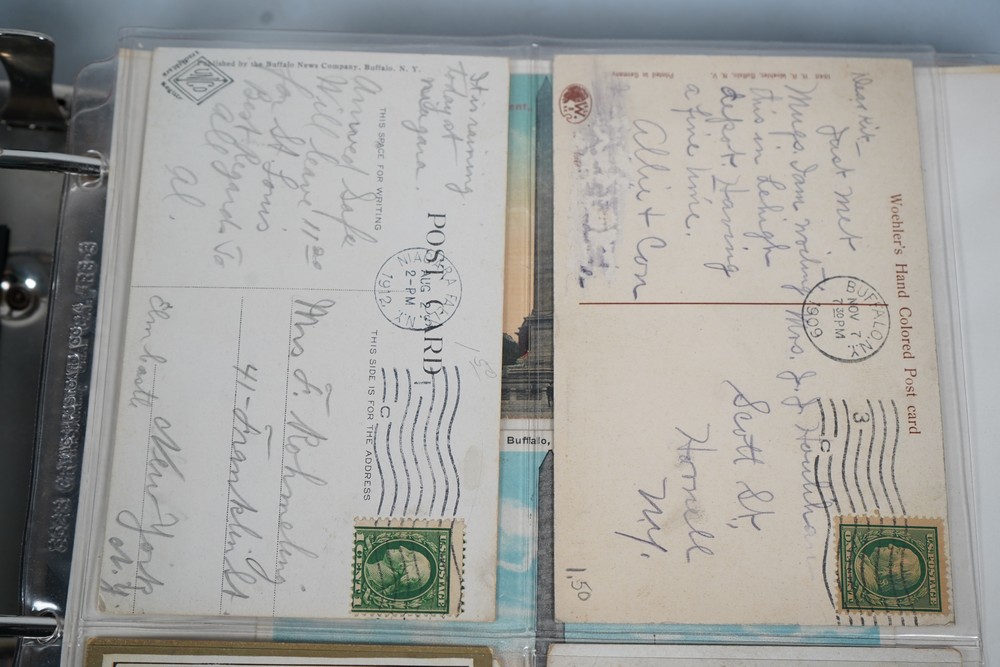 Published by the Buffalo News Company, Buffalo, N. Y.
It is raining
today at
niagara.
Arrived Safe
Will leave 11 20
for St Louis
Best Regards to
all
Al.
THIS SPACE FOR WRITING
POST CARD
THIS SIDE IS FOR THE ADDRESS
NIAGARA FALLS
AUG 2
2-PM
1912
N.Y.
C
1 50
Mrs F. Rohmeling
41-Franklin St
New York
N.Y.
U.S. POSTAGE
1 CENT 1
Buffalo,
Woehler's Hand Colored Post card
Printed in Germany
Dear Kit-
Just met
Mugs. Iam writing
this in Lehigh
depot. Having
a fine time.
Allie + Con
BUFFALO, N.Y.
NOV 7
7 30 PM
1909
3
C
Mrs. J. J. Houriha
Scott St,
Hornell
N.Y.
1,50
U.S. POSTAGE
ONE CENT